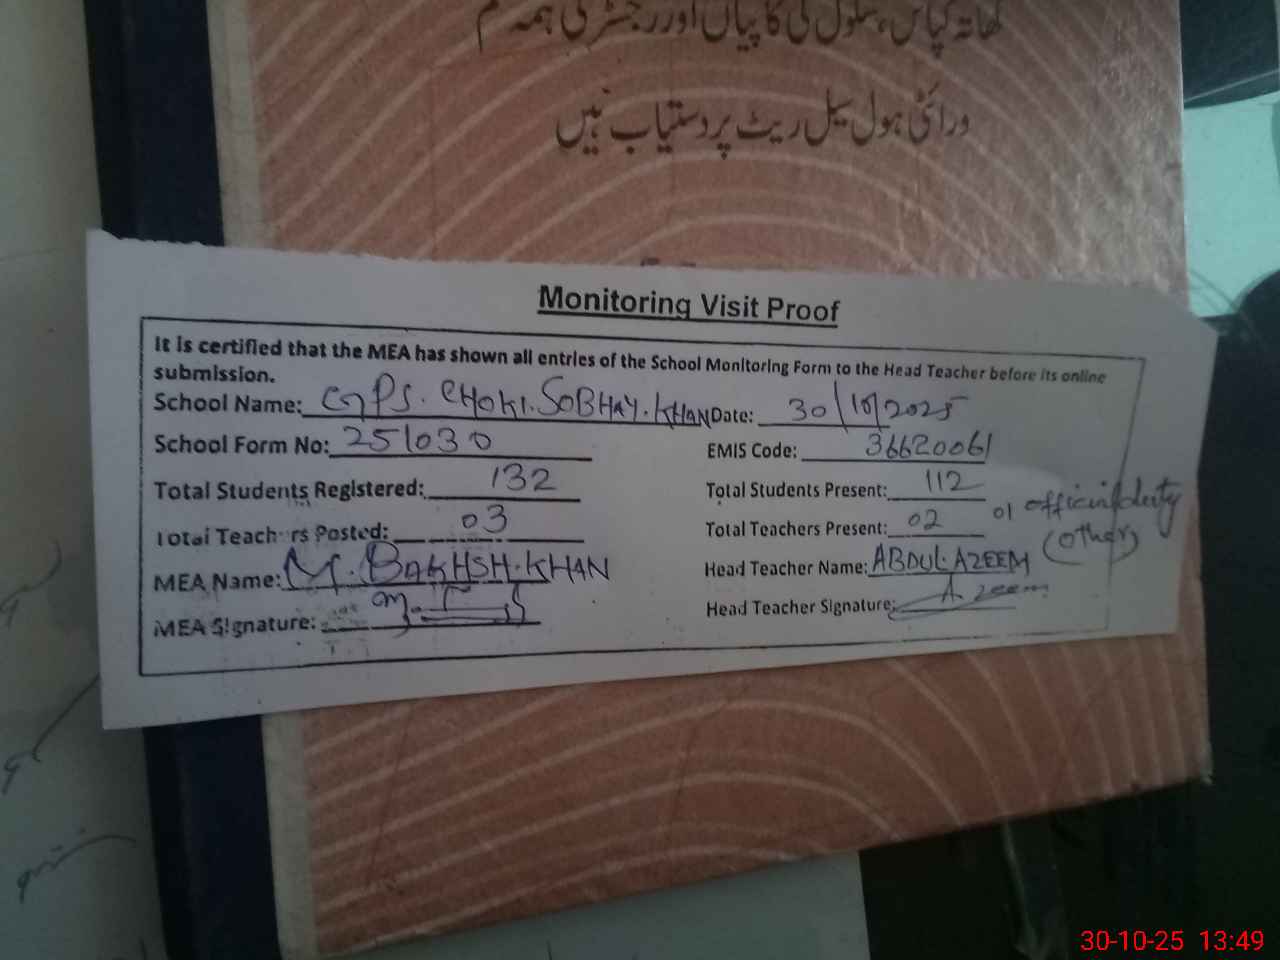 کھاتہ کپاس، سکول کی کاپیاں اور رجسٹر کی ہمہ قسم
ورائٹی ہول سیل ریٹ پر دستیاب ہیں
Monitoring Visit Proof
It is certified that the MEA has shown all entries of the School Monitoring Form to the Head Teacher before its online
submission.
School Name: GPS. CHOKI. SOBHAY. KHAN Date: 30/10/2025
School Form No: 251030 EMIS Code: 36620061
Total Students Registered: 132 Total Students Present: 112
Total Teachers Posted: 03 Total Teachers Present: 02 01 official duty
(other)
MEA Name: M. BAKHSH. KHAN Head Teacher Name: ABDUL. AZEEM
MEA Signature: Head Teacher Signature: A. zeem
30-10-25 13:49